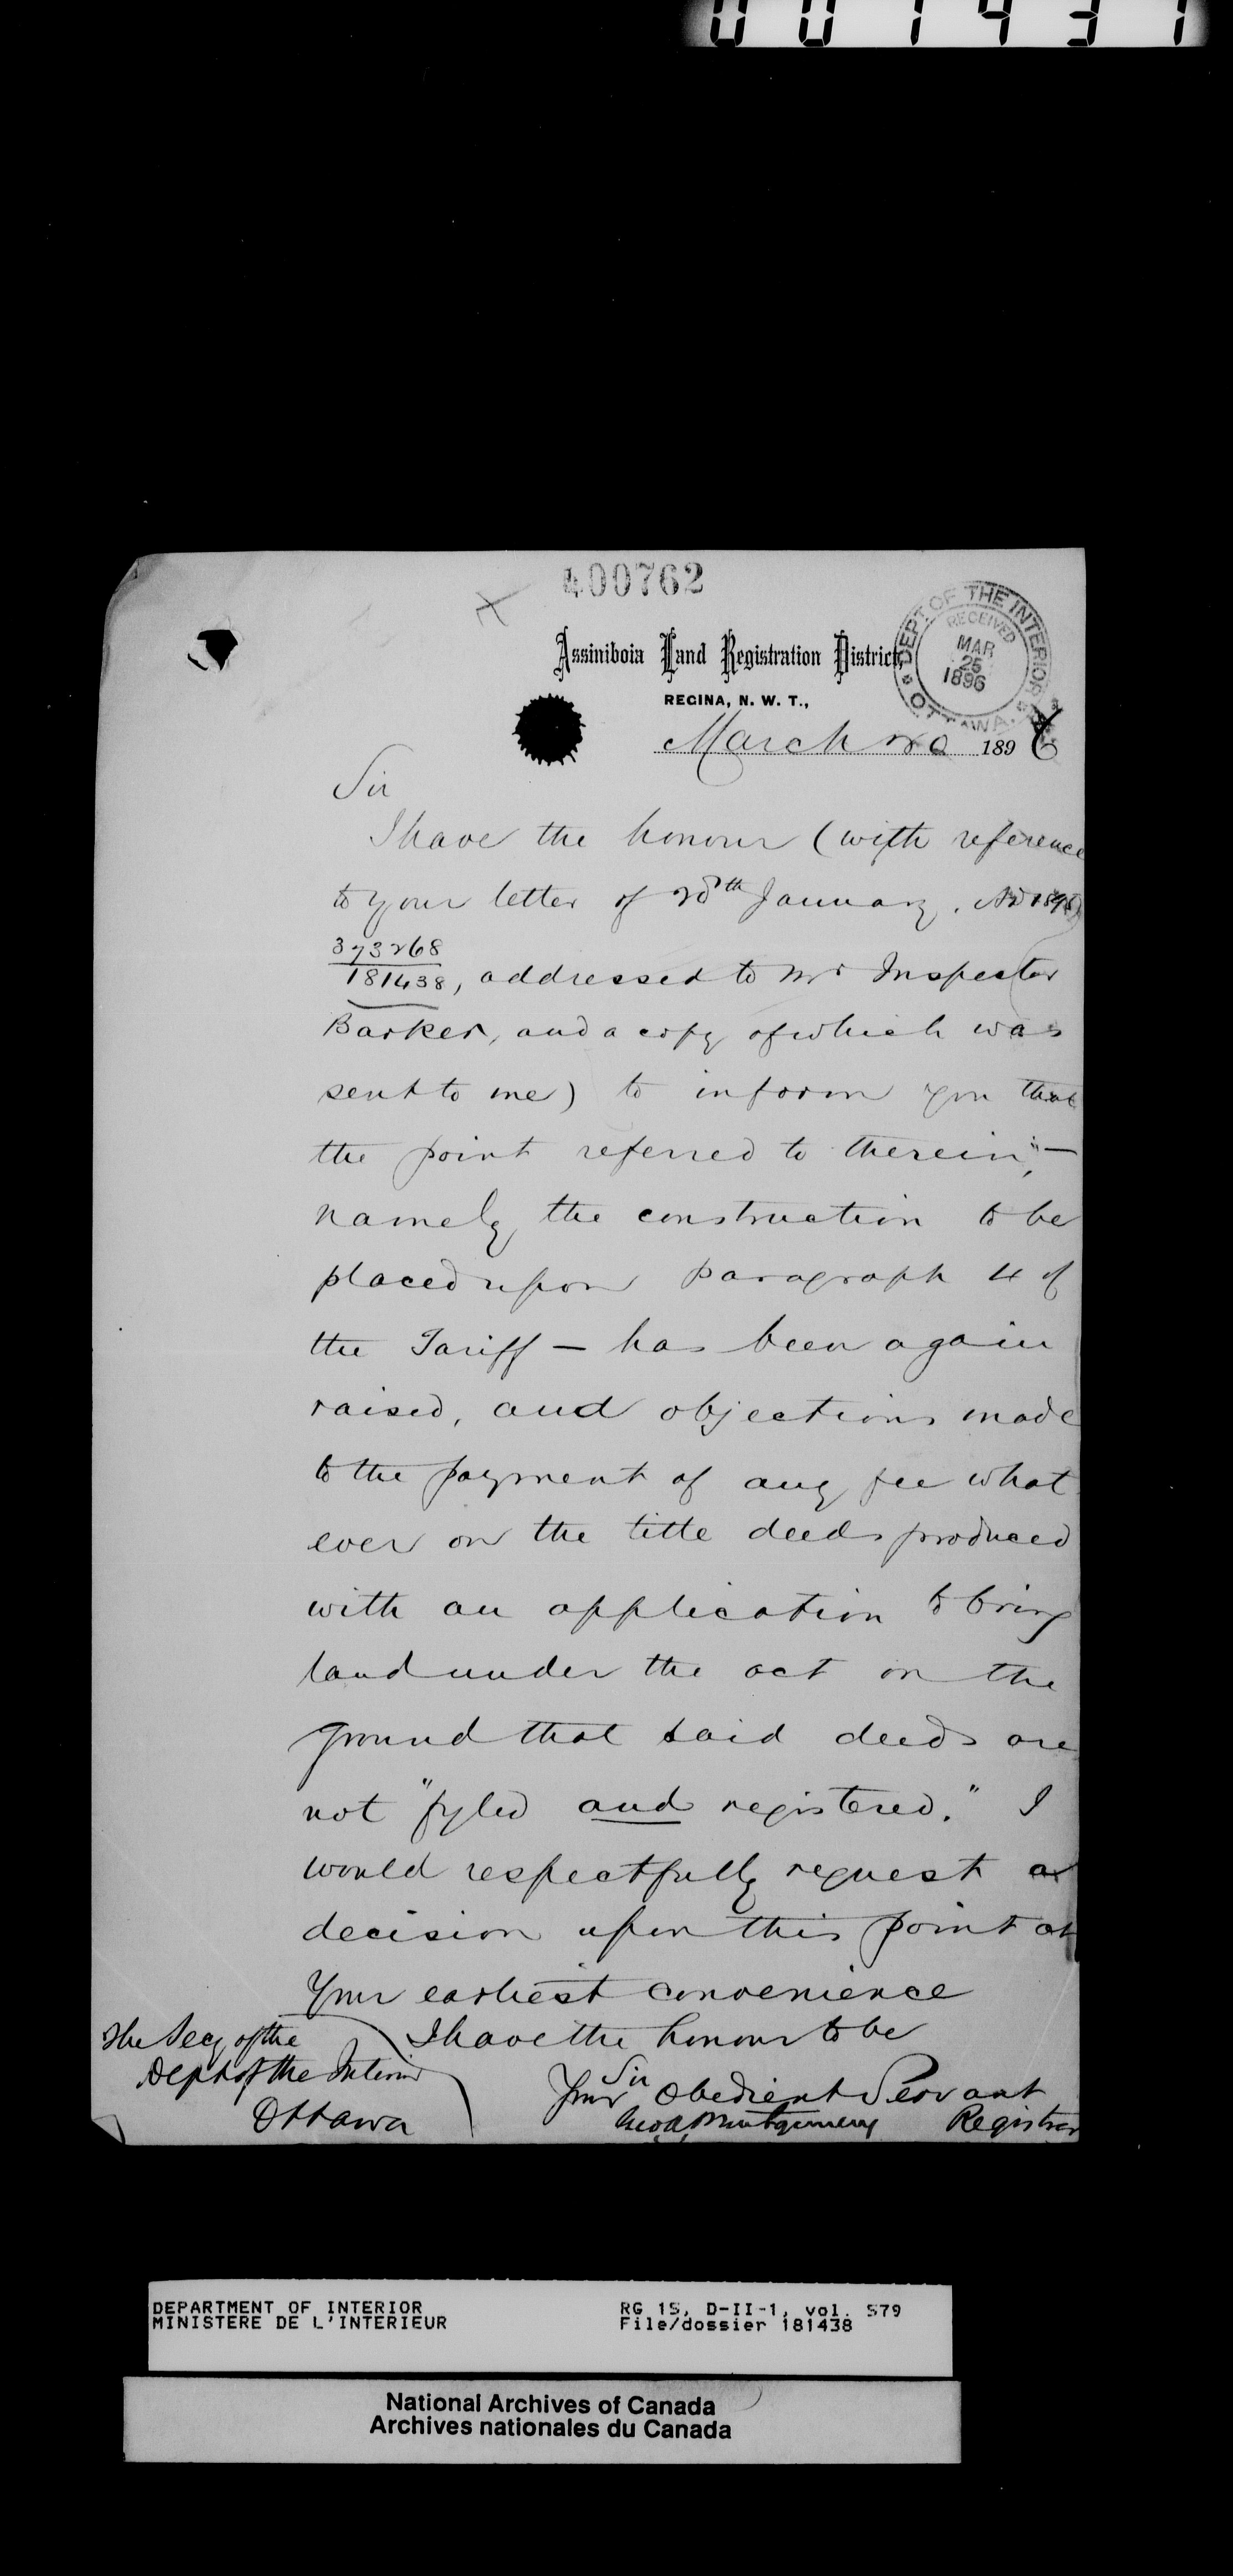 001437
400762
DEPT. OF THE INTERIOR
RECEIVED
MAR
25
1896
OTTAWA
Assiniboia Land Registration District,
REGINA, N. W. T.,
March 20 1896
Sir
I have the honour (with reference
to your letter of th January, No
373268
181438, addressed to Mr Inspector
Barker, and a copy of which was
sent to me) to inform you that
the point referred to therein, —
namely the construction to be
placed upon paragraph 4 of
the Tariff — has been again
raised, and objections made
to the payment of any fee what
ever on the title deeds produced
with an application to bring
land under the act on the
ground that said deeds are
not "fyled and registered." I
would respectfully request a
decision upon this point at
Your earliest convenience
I have the honour to be
Sir
Your Obedient Servant
Geo. A. Montgomery Registrar
The Secy of the
Dept of the Interior
Ottawa
DEPARTMENT OF INTERIOR
MINISTERE DE L'INTERIEUR
RG 15, D-II-1, vol. 579
File/dossier 181438
National Archives of Canada
Archives nationales du Canada